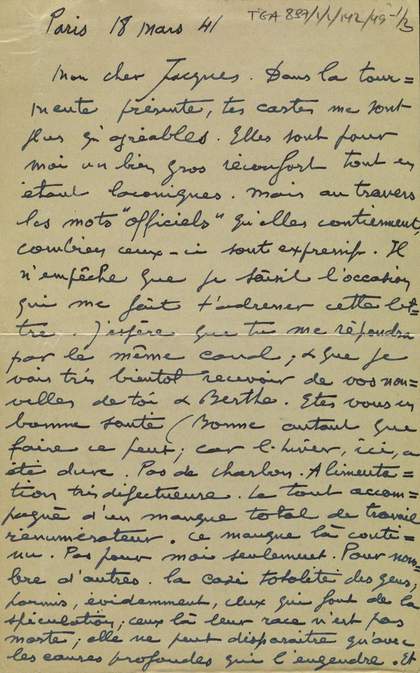 Paris 18 mars 41 TGA 887/1/1/142/49-1/3
Mon cher Jacques. Dans la tour=
mente présente, tes cartes me sont
plus qu'agréables. Elles sont pour
moi un bien gros réconfort tout en
étant laconiques. Mais au travers
les mots "officiels" qu'elles contiennent,
combien ceux-ci sont expressifs. Il
n'empêche que je saisis l'occasion
qui me fait t'adresser cette let=
tre. J'espère que tu me répondra
par le même canal; & que je
vais très bientôt recevoir de vos nou=
velles de toi & Berthe. Etes vous en
bonne santé (Bonne autant que
faire ce peut; car l'hiver, ici, a
été dure. Pas de charbon. Alimenta=
tion très défectueuse. Le tout accom=
pagné d'un manque total de travail
rénumérateur. Ce manque là conti=
nu. Pas pour moi seulement. Pour nom=
bre d'autres. la casi totalité des gens,
parmis, évidemment, ceux qui font de la
spéculation; ceux là leur race n'est pas
morte; elle ne peut disparaitre qu'avec
les causes profondes qui l'engendre. Et